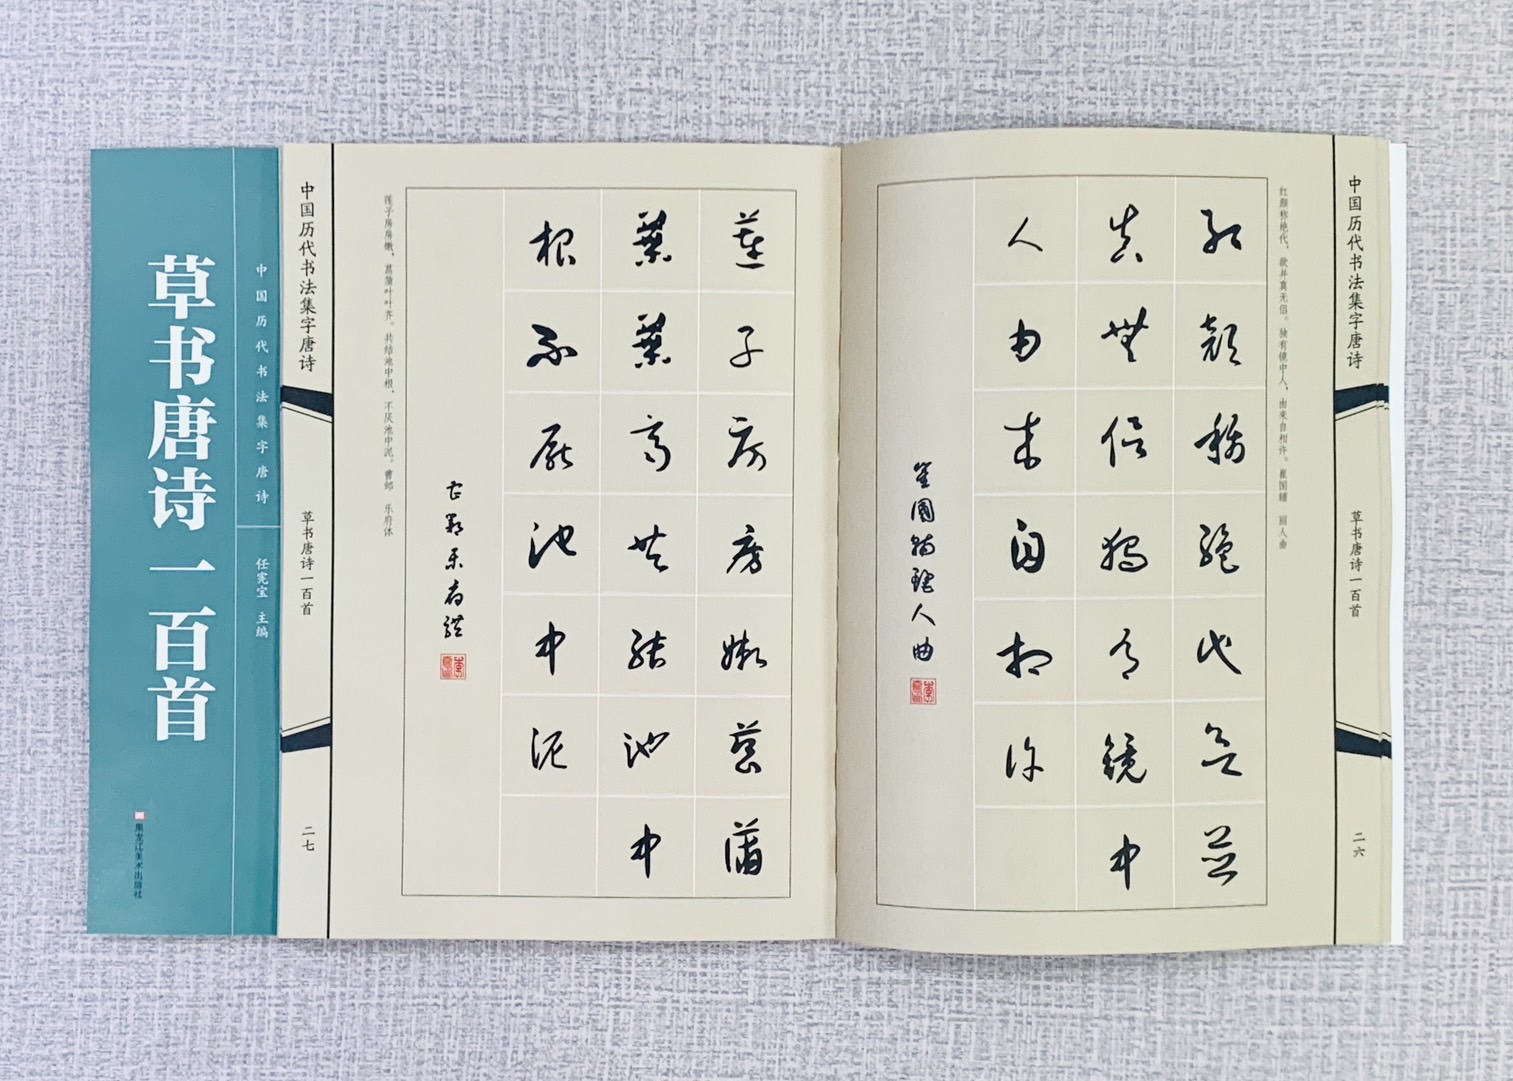 中国历代书法集字唐诗
草书唐诗一百首
二六
红颜称绝代，欲并真无侣。独有镜中人，由来自相许。崔国辅 丽人曲
紅顏稱絕代欲並
真無侶獨有鏡中
人由來自相許
崔國輔麗人曲
蓮子房房嫩菖蒲
葉葉齊共結池中
根不厭池中泥
曹鄴樂府體
莲子房房嫩，菖蒲叶叶齐。共结池中根，不厌池中泥。曹邺 乐府体
中国历代书法集字唐诗
草书唐诗一百首
二七
中国历代书法集字唐诗
任宪宝 主编
草书唐诗一百首
黑龙江美术出版社